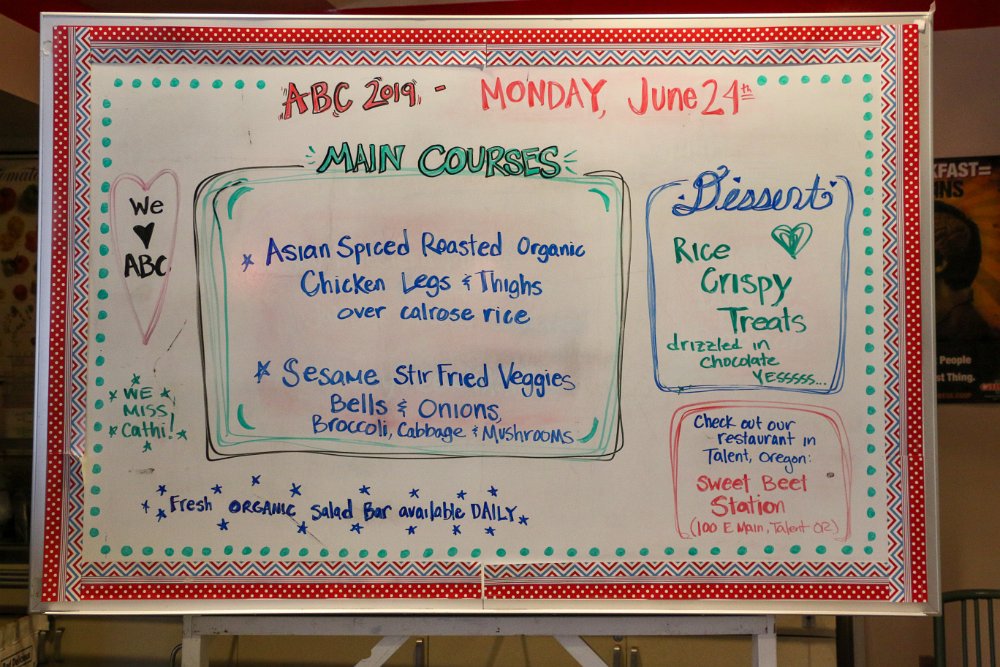 ABC 2019 - MONDAY, June 24th
MAIN COURSES
Asian Spiced Roasted Organic
Chicken Legs & Thighs
over calrose rice
Sesame Stir Fried Veggies
Bells & Onions,
Broccoli, Cabbage & Mushrooms
We
♥
ABC
WE
MISS
Cathi!
Dessert
Rice
Crispy
Treats
drizzled in
chocolate
YESSSSS...
Check out our
restaurant in
Talent, Oregon:
Sweet Beet
Station
(100 E Main, Talent OR)
Fresh ORGANIC Salad Bar available DAILY
KFAST=
People
st Thing.